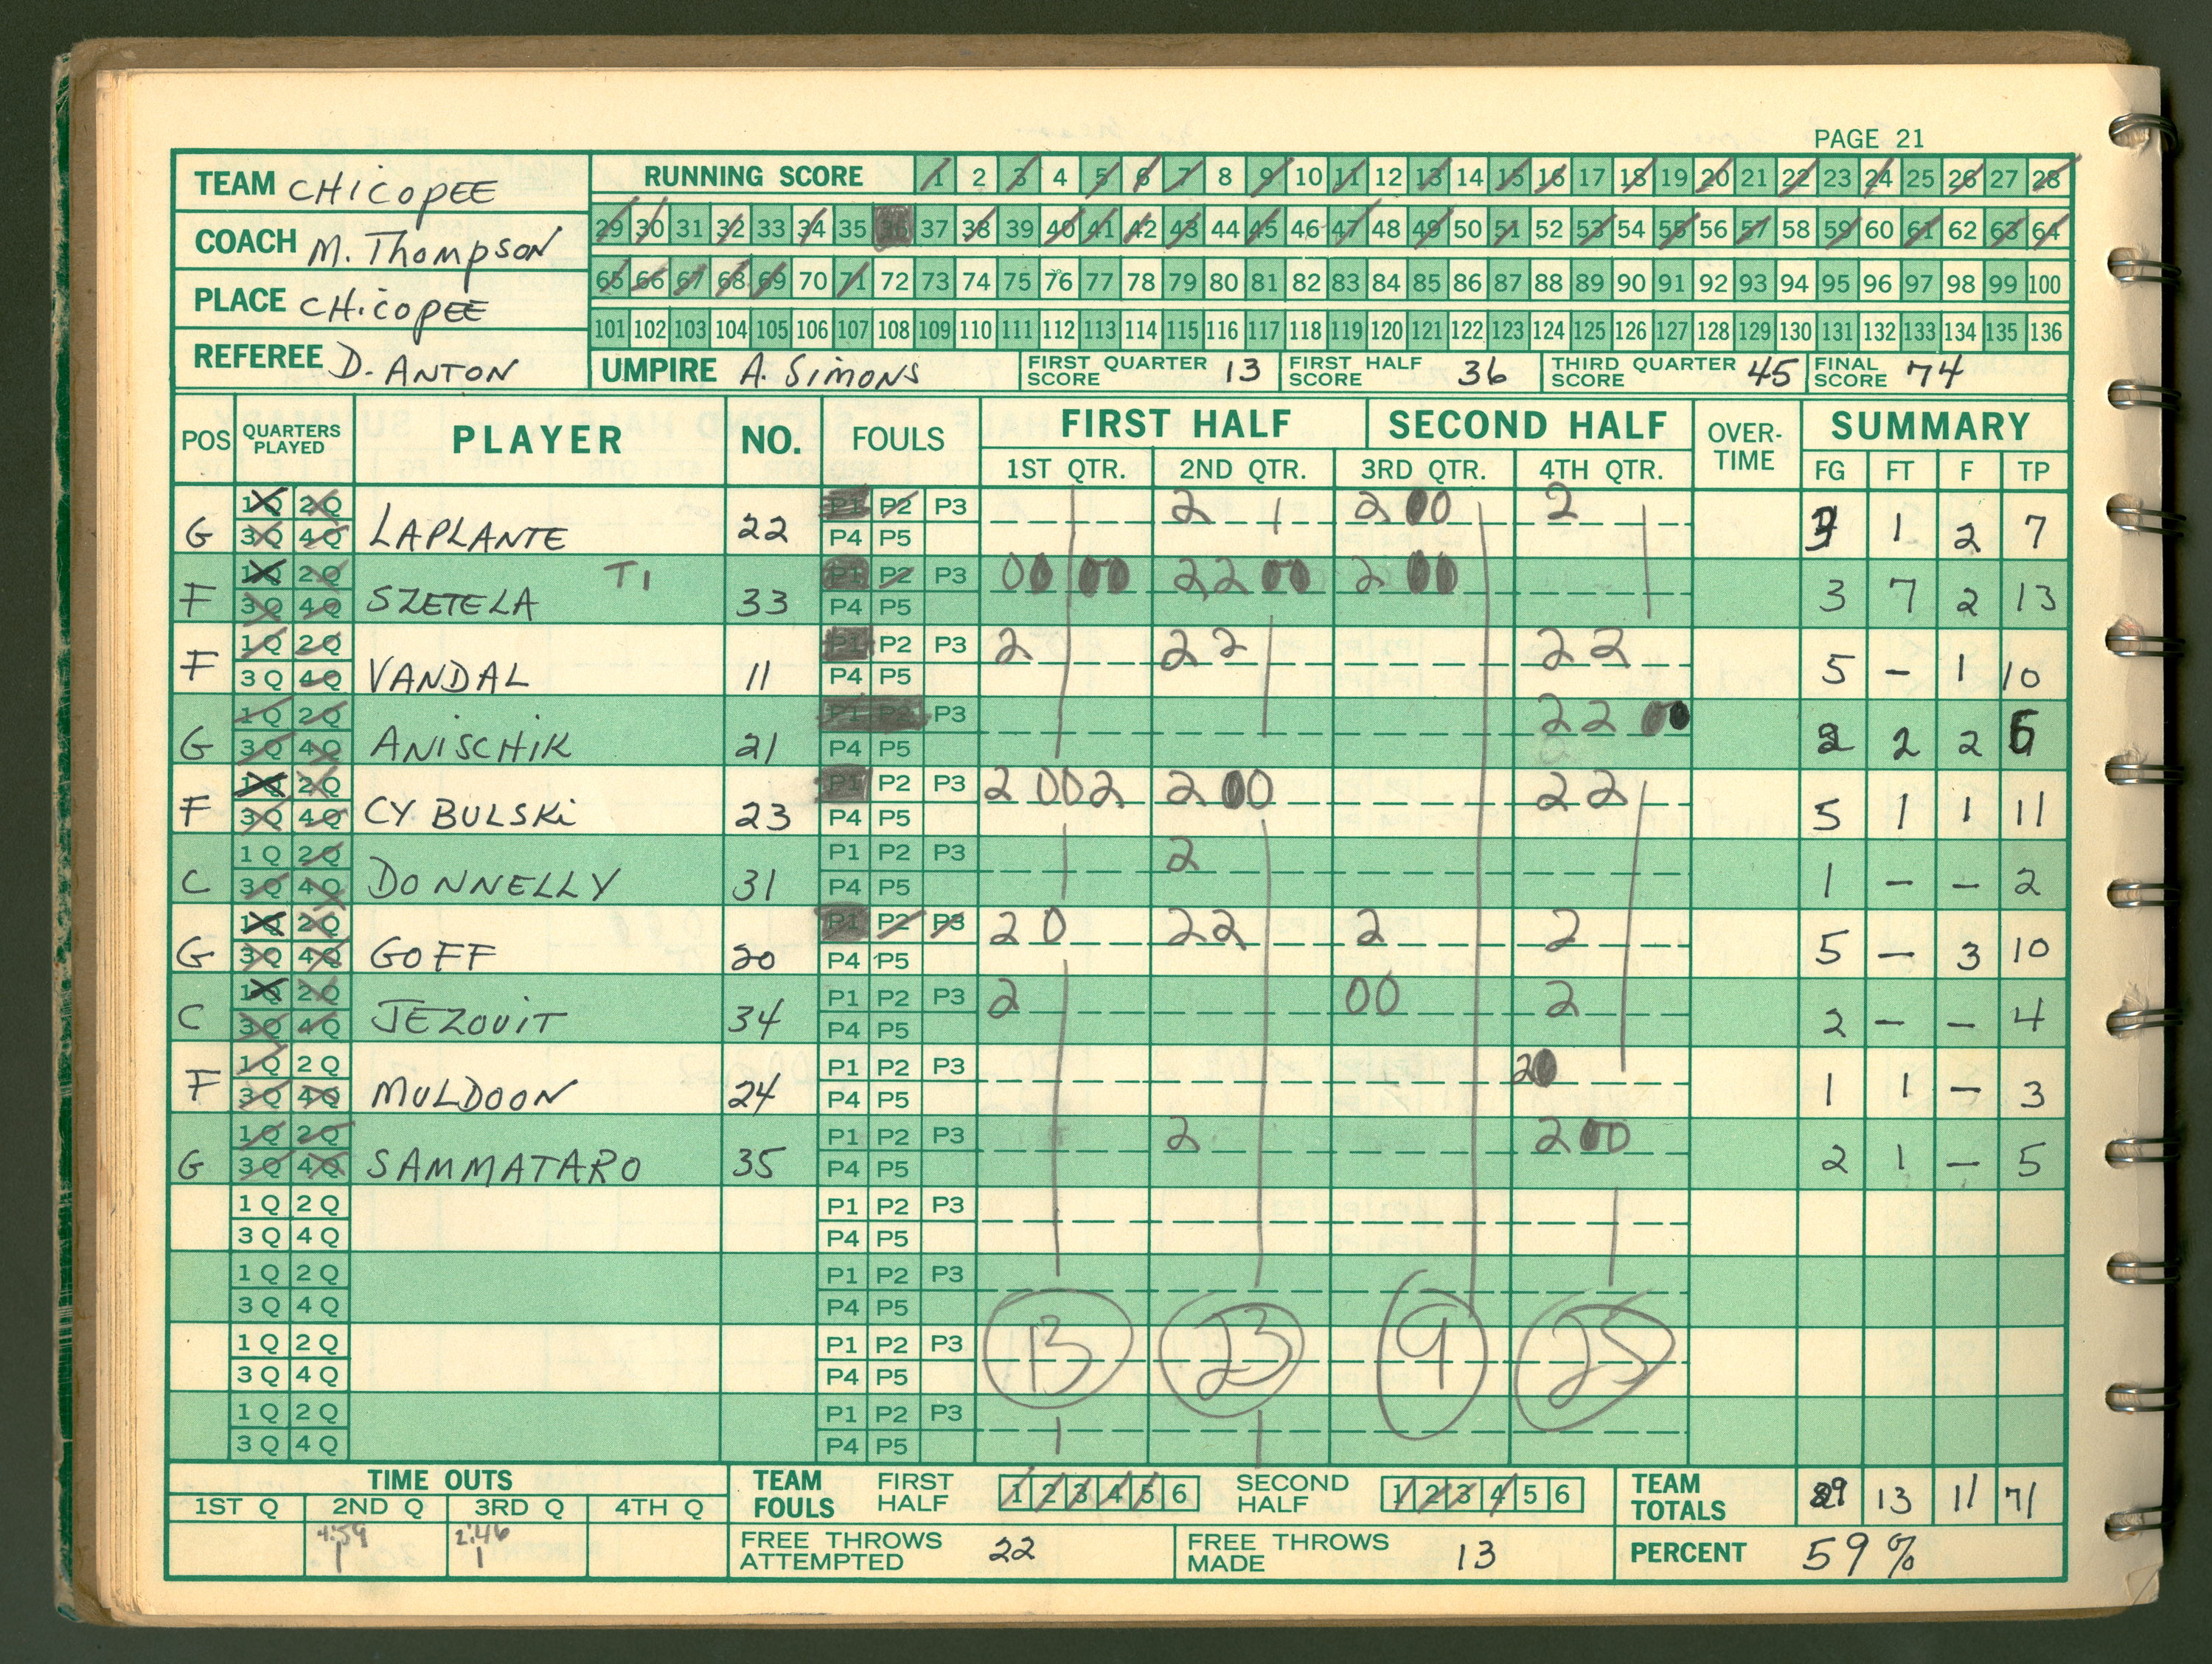 PAGE 21
TEAM CHICOPEE
RUNNING SCORE 1 2 3 4 5 6 7 8 9 10 11 12 13 14 15 16 17 18 19 20 21 22 23 24 25 26 27 28
COACH M. Thompson
29 30 31 32 33 34 35 36 37 38 39 40 41 42 43 44 45 46 47 48 49 50 51 52 53 54 55 56 57 58 59 60 61 62 63 64
PLACE CHICOPEE
65 66 67 68 69 70 71 72 73 74 75 76 77 78 79 80 81 82 83 84 85 86 87 88 89 90 91 92 93 94 95 96 97 98 99 100
101 102 103 104 105 106 107 108 109 110 111 112 113 114 115 116 117 118 119 120 121 122 123 124 125 126 127 128 129 130 131 132 133 134 135 136
REFEREE D. ANTON UMPIRE A. SIMONS FIRST QUARTER SCORE 13 FIRST HALF SCORE 36 THIRD QUARTER SCORE 45 FINAL SCORE 74
POS QUARTERS PLAYED PLAYER NO. FOULS FIRST HALF SECOND HALF OVER-TIME SUMMARY
1ST QTR. 2ND QTR. 3RD QTR. 4TH QTR. FG FT F TP
1Q 2Q P1 P2 P3 2 1 2 00 2
G 3Q 4Q LAPLANTE 22 P4 P5 3 1 2 7
1Q 2Q T1 P1 P2 P3 00 00 22 00 2 00
F 3Q 4Q SZETELA 33 P4 P5 3 7 2 13
1Q 2Q P1 P2 P3 2 22 22
F 3Q 4Q VANDAL 11 P4 P5 5 - 1 10
1Q 2Q P1 P2 P3 22 00
G 3Q 4Q ANISCHIK 21 P4 P5 2 2 2 6
1Q 2Q P1 P2 P3 2 00 2 2 00 22
F 3Q 4Q CYBULSKI 23 P4 P5 5 1 1 11
1Q 2Q P1 P2 P3 2
C 3Q 4Q DONNELLY 31 P4 P5 1 - - 2
1Q 2Q P1 P2 P3 2 0 22 2 2
G 3Q 4Q GOFF 20 P4 P5 5 - 3 10
1Q 2Q P1 P2 P3 2 00 2
C 3Q 4Q JEZOUIT 34 P4 P5 2 - - 4
1Q 2Q P1 P2 P3 20
F 3Q 4Q MULDOON 24 P4 P5 1 1 - 3
1Q 2Q P1 P2 P3 2 2 00
G 3Q 4Q SAMMATARO 35 P4 P5 2 1 - 5
1Q 2Q P1 P2 P3
3Q 4Q P4 P5
1Q 2Q P1 P2 P3
3Q 4Q P4 P5
1Q 2Q P1 P2 P3 13 23 9 25
3Q 4Q P4 P5
1Q 2Q P1 P2 P3
3Q 4Q P4 P5
TIME OUTS TEAM FOULS FIRST HALF 1 2 3 4 5 6 SECOND HALF 1 2 3 4 5 6 TEAM TOTALS 29 13 11 71
1ST Q 2ND Q 3RD Q 4TH Q
4:59 2:46
1 1
FREE THROWS ATTEMPTED 22 FREE THROWS MADE 13 PERCENT 59%